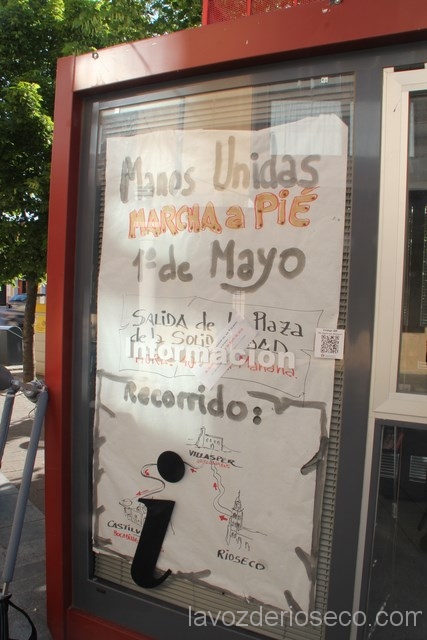 Manos Unidas
MARCHA a PIÉ
1º de Mayo
SALIDA de la Plaza
de la SOLIDARIDAD
Información
Recorrido:
VILLAESPER
CASTILV
RIOSECO
i
lavozderioseco.com.